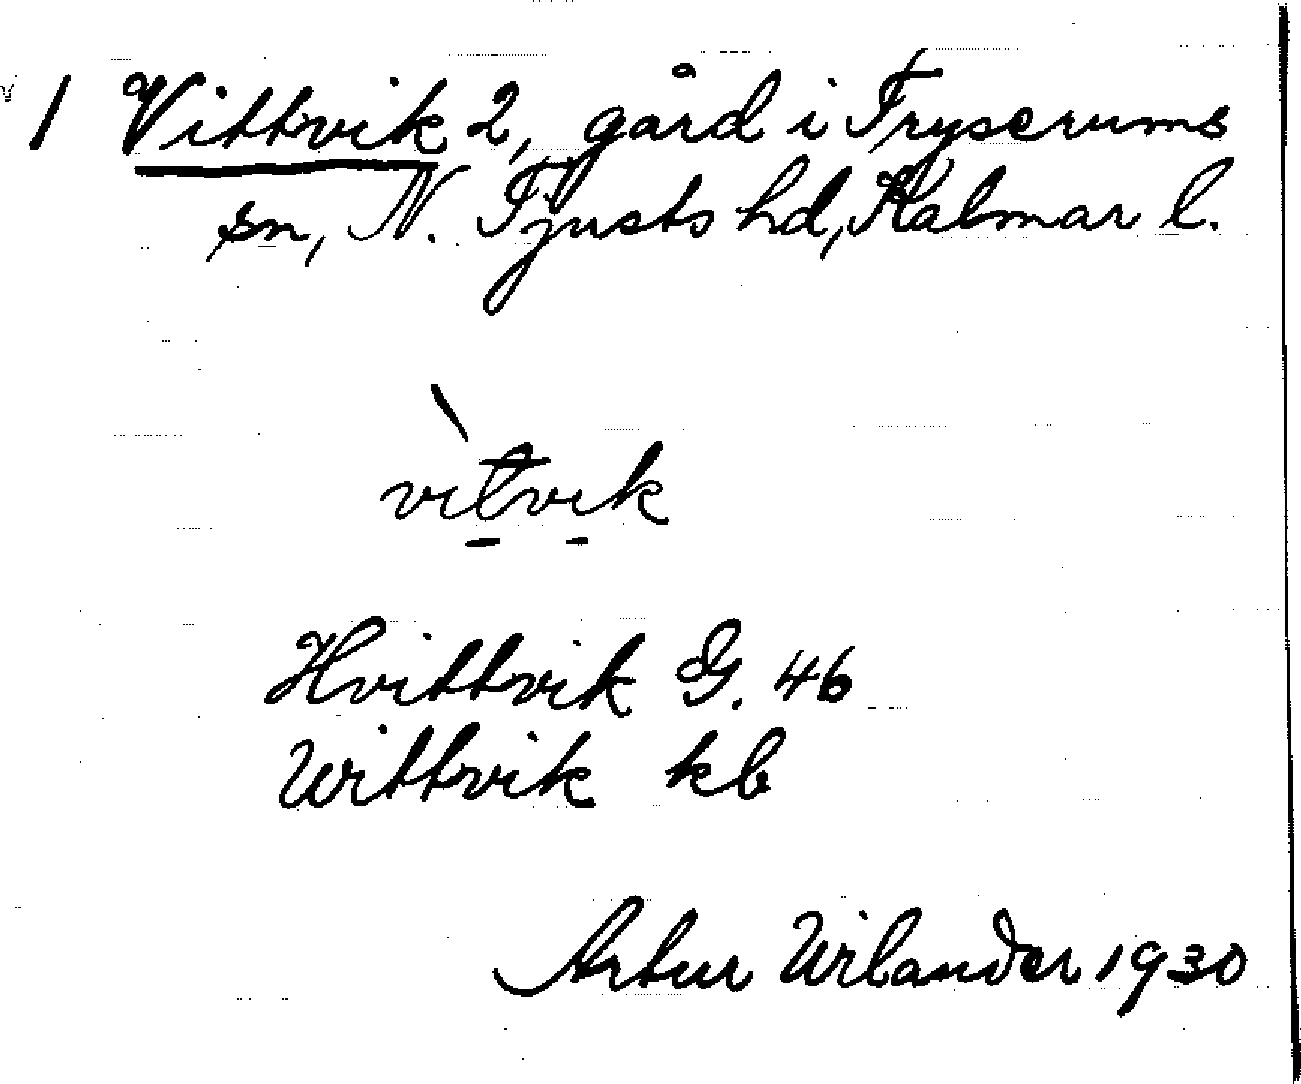 1 Vittvik 2, gård i Tryserums
sn, N. Tjusts hd, Kalmar l.
vìtvik
Hvittvik G. 46
Wittvik kb
Artur Wilander 1930